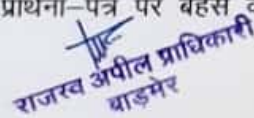 प्रार्थना–पत्र पर बहस
राजस्व अपील प्राधिकारी
बाड़मेर